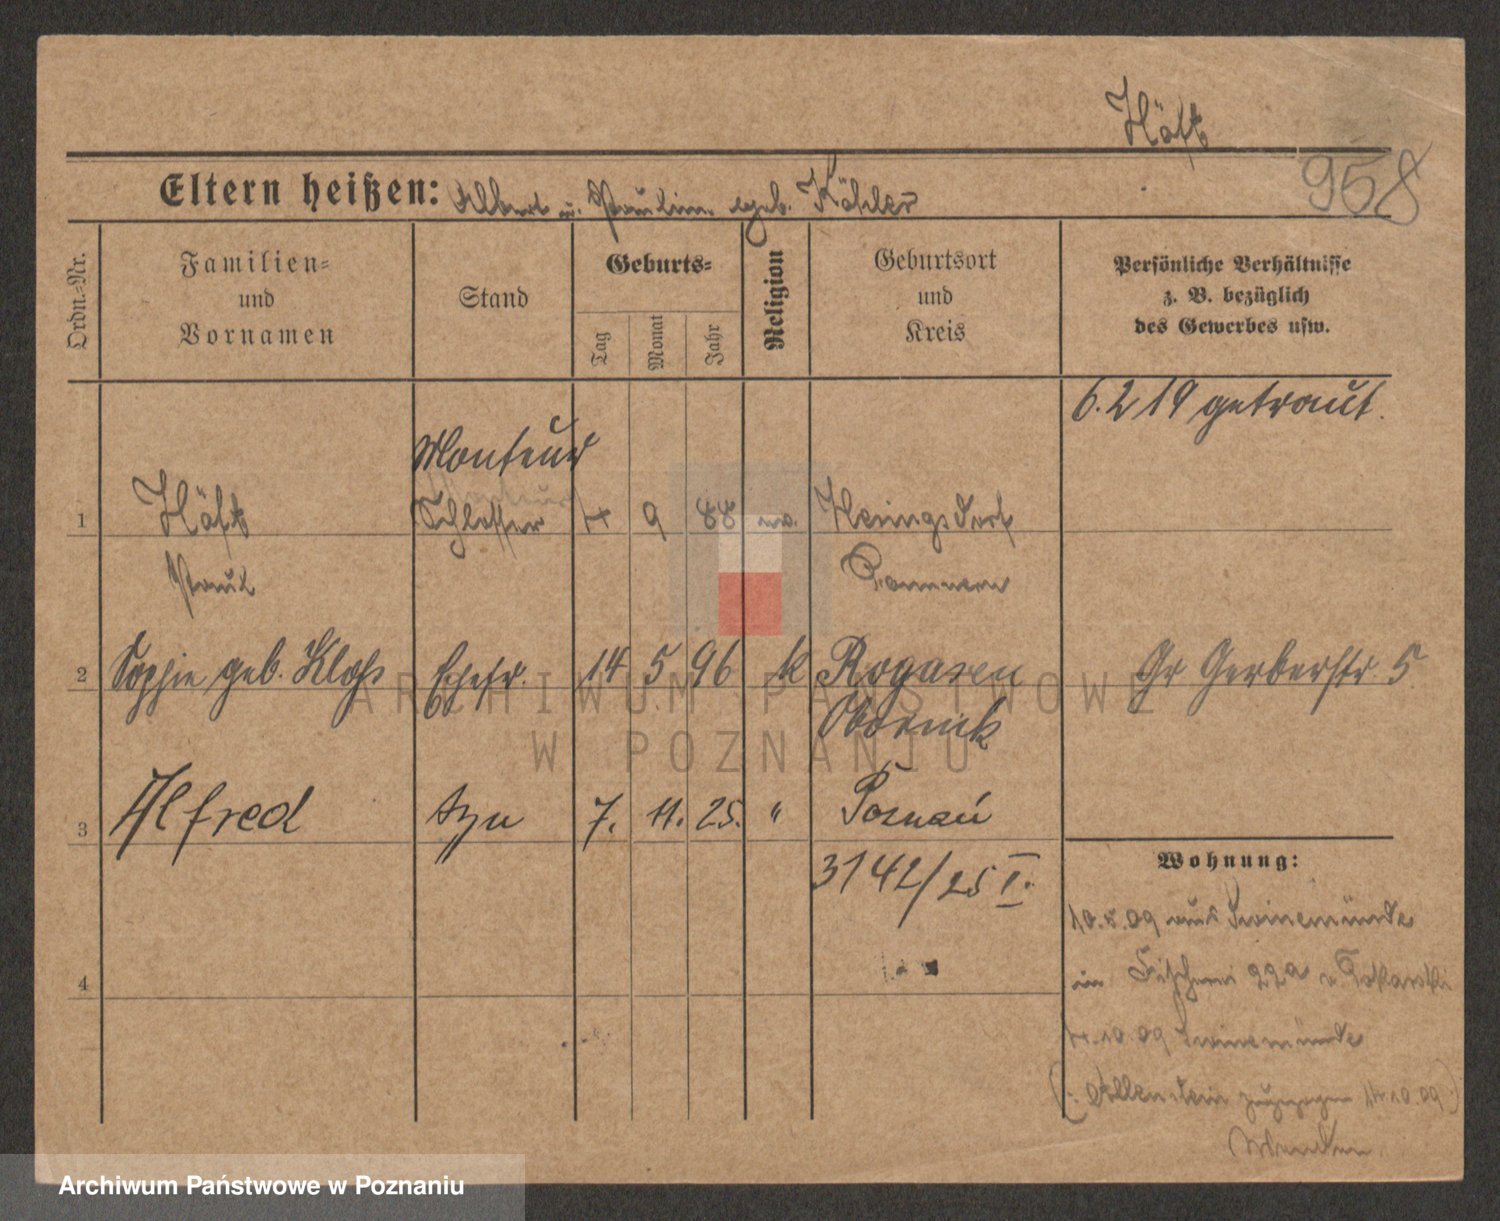 Höft
958
Eltern heißen: Albert u. Pauline geb. Köhler
Ordn.-Nr.
Familien-
und
Vornamen
Stand
Geburts-
Tag
Monat
Jahr
Religion
Geburtsort
und
Kreis
Persönliche Verhältnisse
z. B. bezüglich
des Gewerbes usw.
6.2 19 getraut.
Monteur
1 Höft Schlosser 4 9 88 ev. Heringsdorf
Paul Pommern
2 Sophie geb. Kloss Ehefr. 14 5 96 k Rogasen Gr Gerberstr. 5
Obornik
3 Alfred syn 7. 11. 25. " Poznań
3142/25 I.
Wohnung:
10.5.09 aus Swinemünde
in Fischerei 22a
4
4.10.09 Swinemünde
(: Allenstein zugezogen 14.10.09)
ARCHIWUM PAŃSTWOWE
W POZNANIU
Archiwum Państwowe w Poznaniu